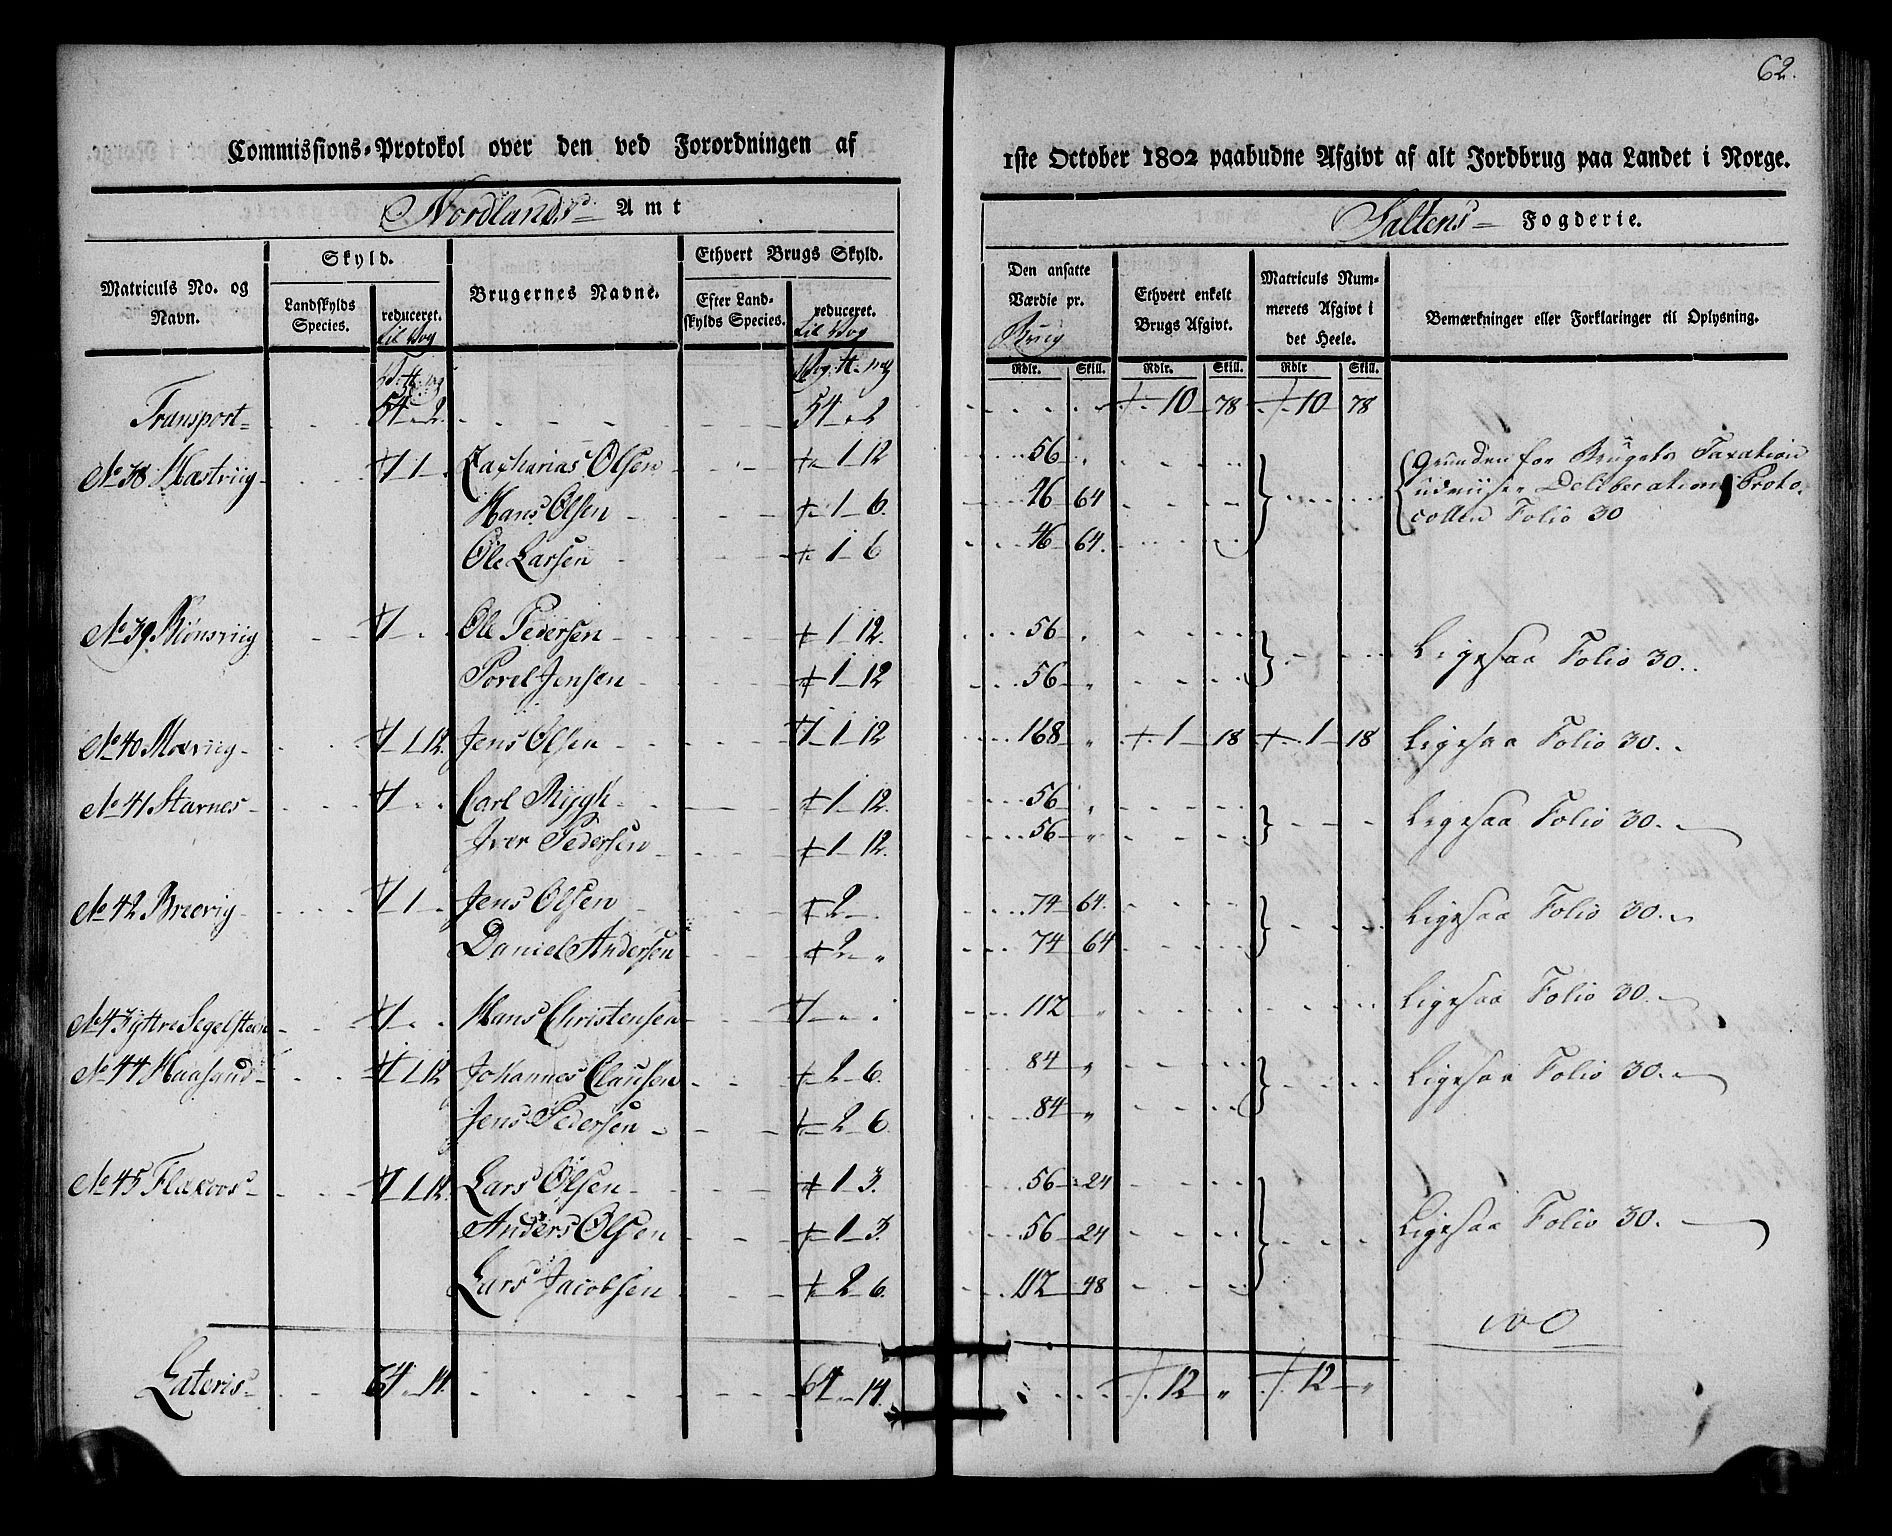 62.
Commissions-Protokol over den ved Forordningen af
1ste October 1802 paabudne Afgivt af alt Jordbrug paa Landet i Norge.
Nordlands Amt
Saltens Fogderie.
Matriculs No. og Navn.
Skyld.
Landskylds Species.
reduceret. til Vog
Brugernes Navne.
Ethvert Brugs Skyld.
Efter Landskylds Species.
reduceret. til Vog
Den ansatte Værdie pr. Brug
Ethvert enkelt Brugs Afgivt.
Matriculs Nummerets Afgivt i det Heele.
Bemærkninger eller Forklaringer til Oplysning.
Rdlr. Skill. Rdlr. Skill. Rdlr Skill.
Transport 54 - 2. 54 - 2 10 78 10 78
No 38 Mastviig 1 1 Zacharias Olsen 1 12 56 Grunden for Brugets Taxation
Hans Olsen 1 6. 46 64 udviiser Deliberations Proto-
Ole Larsen 1 6 46 64. collen Folio 30
No 39 Mønsviig 1 Ole Pedersen 1 12. 56
Porel Jensen 1 12 56 Ligesaa Folio 30.
No 40 Mæviig 1 1 12. Jens Olsen 1 1 12 168 1 18 1 18 Ligesaa Folio 30.
No 41 Starnes 1 Carl Myggh 1 12. 56
Iver Pedersen 1 12. 56 Ligesaa Folio 30.
No 42 Breevig 1 1 Jens Olsen 2 74 64.
Daniel Andersen 2 74 64 Ligesaa Folio 30.
No 43 yttre Segelsteen 1 Hans Christensen 1 112 Ligesaa Folio 30.
No 44 Haasund 1 1 12 Johannes Clausen 2 6. 84 Ligesaa Folio 30.
Jens Pedersen 2 6. 84
No 45 Flaxoos 1 1 12. Lars Olsen 1 3. 56 24
Anders Olsen 1 3. 56 24 Ligesaa Folio 30.
Lars Jacobsen 2 6. 112 48
Lateris 64 14. 64 14. 12 " 12 "